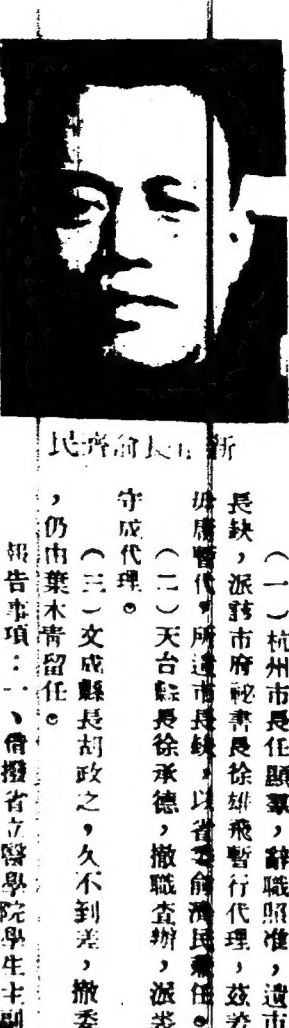 新市長俞濟民
（一）杭州市長任顯羣，辭職照准，遺市
長缺，派該市府祕書長徐雄飛暫行代理，茲
暫代，所遺市長缺，以省委俞濟民兼任。
（二）天台縣長徐承德，撤職查辦，派
守成代理。
（三）文成縣長胡政之，久不到差，撤委
，仍由葉木青留任。
報告事項：一、借撥省立醫學院學生主副